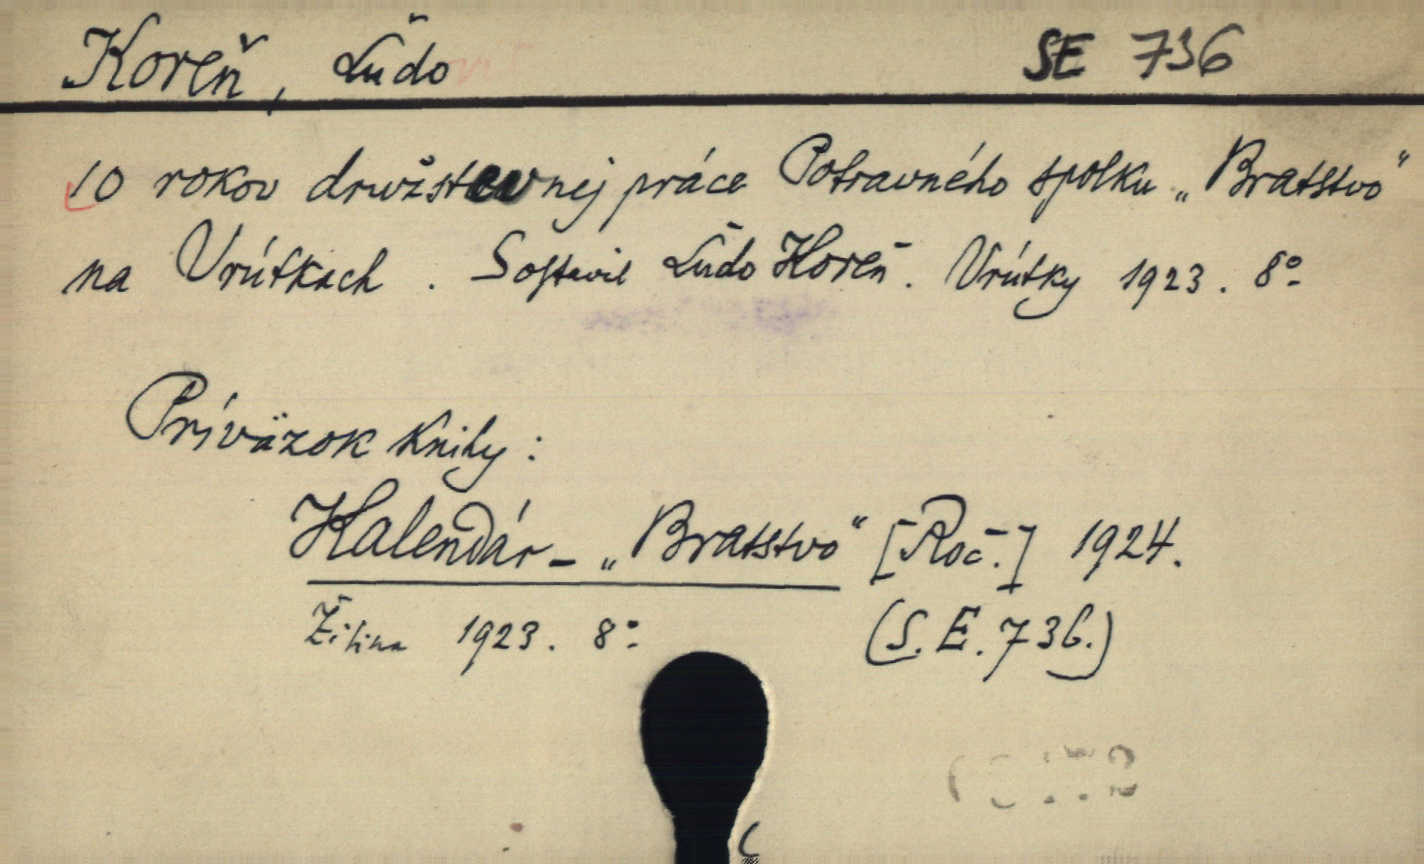 Koreň, Ľudo SE 736
10 rokov družstevnej práce Potravného spolku „Bratstvo“
na Vrútkach. Sostavil Ľudo Koreň. Vrútky 1923. 8°
Príväzok knihy:
Kalendár - „Bratstvo“ [Roč.] 1924.
Žilina 1923. 8° (S. E. 736.)